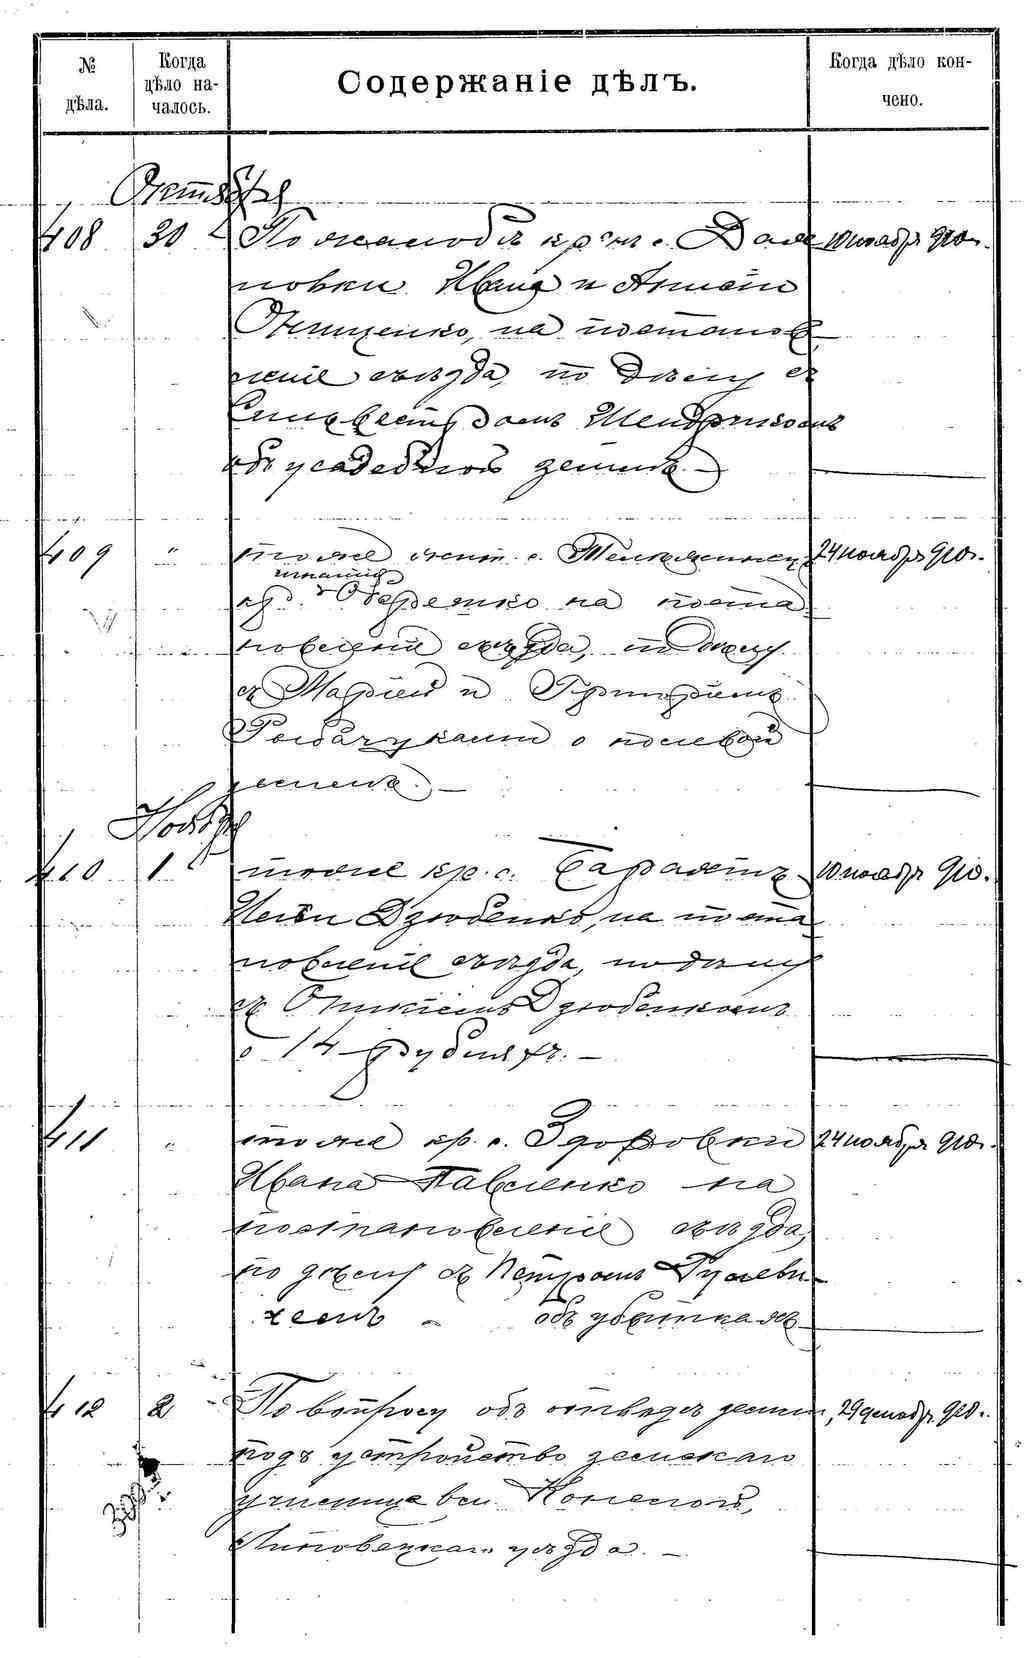 № дѣла.
Когда дѣло началось.
Содержаніе дѣлъ.
Когда дѣло кончено.
Октября
408 30 По жалобѣ кр-нъ с. Дол 10 ноябр 910 г.
новки Ивана и
Онищенко, на постанов
леніе съѣзда, по дѣлу съ
Сильвестромъ Шендрикомъ
объ усадебной землѣ. —
409 " тоже жит. с. 24 ноябр 910 г.
Игнатія
кр. Оберемко на поста
новленіе съѣзда, по дѣлу
съ Маріей и Григоріемъ
Рыбачуками о полевой
землѣ. —
Ноября
410 1 тоже кр. с. 10 ноябр 910 г.
Дзюбенко, на поста
новленіе съѣзда, по дѣлу
съ Оникіемъ Дзюбенкомъ
о 14 рубляхъ. —
411 " тоже кр. с. Здоровки 24 ноябр 910 г.
Ивана Павленко на
постановленіе съѣзда,
по дѣлу съ Петромъ Гулеви-
чемъ объ убыткахъ
412 2 По вопросу объ отводѣ земли, 29 декабр. 910 г.
подъ устройство земскаго
училища въ м. Конелой,
Липовецкаго уѣзда. —